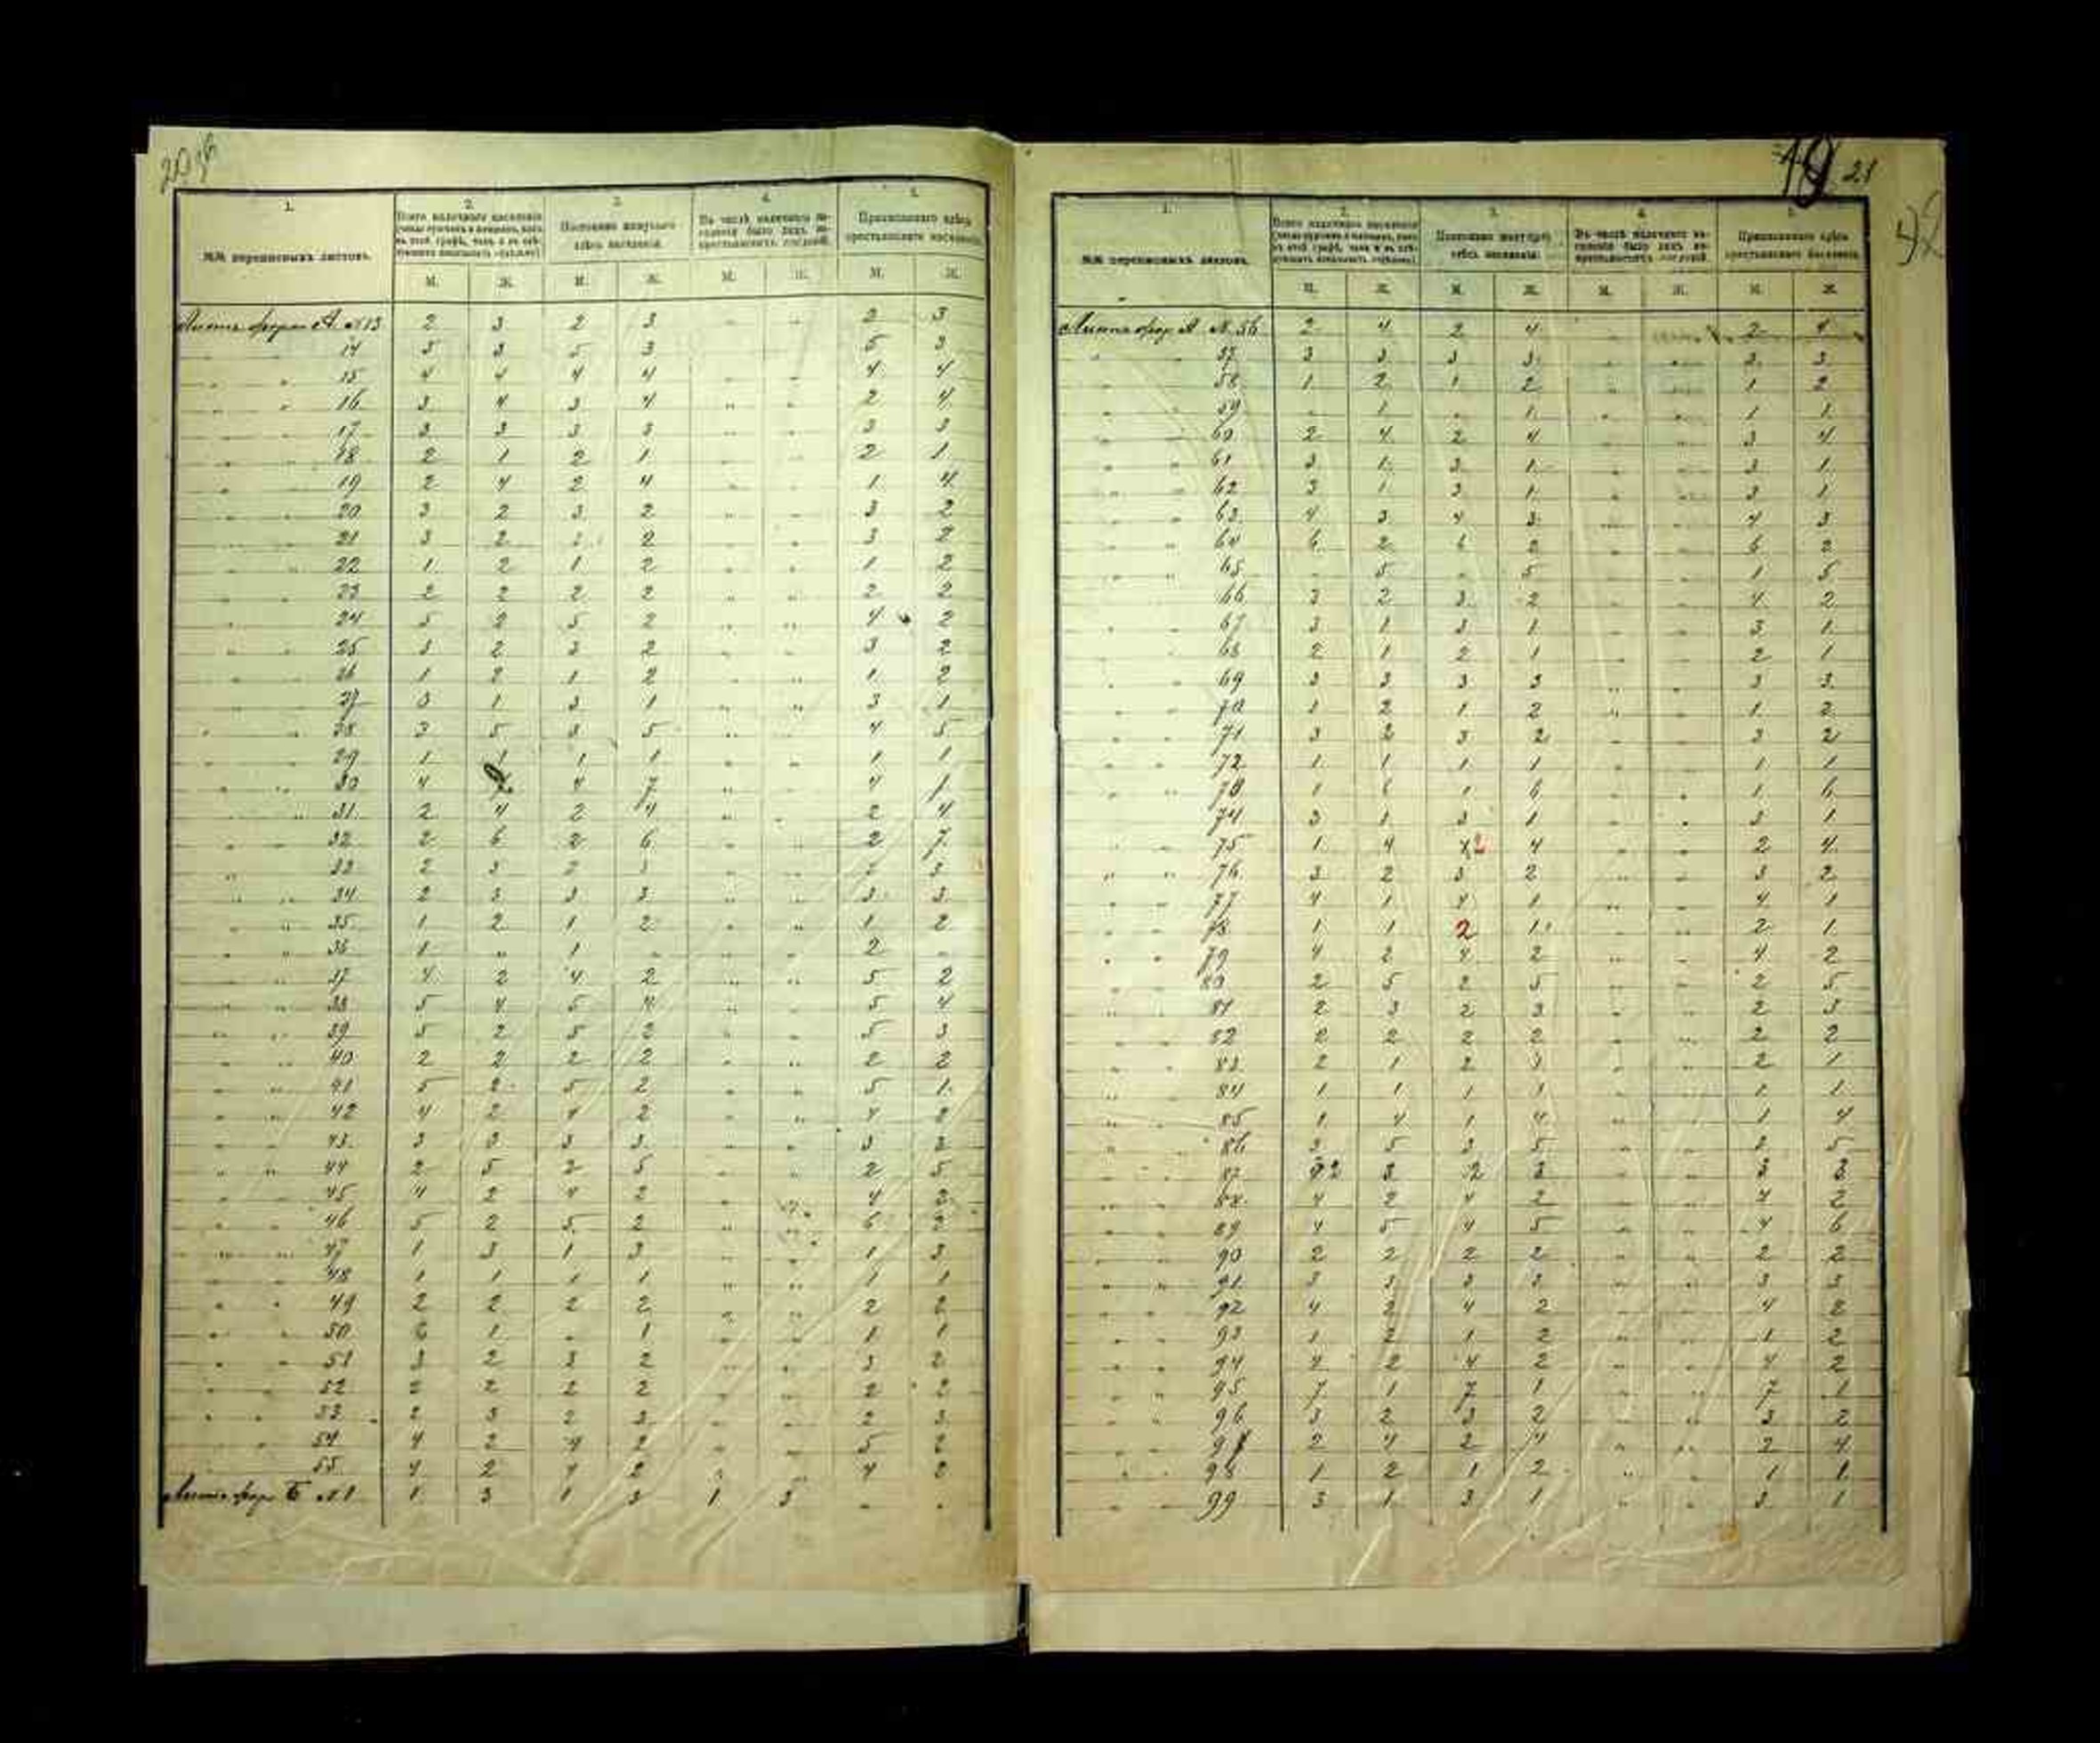 1.
2.
3.
4.
5.
№№ переписныхъ листовъ.
Всего наличнаго населенія
Постоянно живущаго здѣсь населенія.
Въ числѣ наличнаго населенія было лицъ
Приписаннаго здѣсь крестьянскаго населенія.
М. Ж. М. Ж. М. Ж. М. Ж.
А №13 2 3 2 3 2 3
14 5 3 5 3 5 3
15 4 4 4 4 4 4
16 3 4 3 4 2 4
17 3 3 3 3 3 3
18 2 1 2 1 2 1
19 2 4 2 4 1 4
20 3 2 3 2 3 2
21 3 2 2 3 2
22 1 2 1 2 1 2
23 2 2 2 2 2 2
24 5 2 5 2 4 2
25 3 2 3 2 3 2
26 1 2 1 2 1 2
27 3 1 3 1 3 1
28 3 5 3 5 4 5
29 1 1 1 1 1 1
30 4 4 7 4
31 2 4 2 4 2 4
32 2 6 2 6 2 7
33 2 3 2 3 3
34 2 3 3 3 3 3
35 1 2 1 2 1 2
36 1 „ 1 „ 2 „
37 4 2 4 2 5 2
38 5 4 5 4 5 4
39 5 2 5 2 5 3
40 2 2 2 2 2 2
41 5 2 5 2 5 1
42 4 2 4 2 4 2
43 3 3 3 3 3 3
44 2 5 2 5 2 5
45 4 2 4 2 4 2
46 5 2 5 2 6 2
47 1 3 1 3 1 3
48 1 1 1 1 1 1
49 2 2 2 2 2 2
50 1 „ 1 1 1
51 3 2 3 2 3 2
52 2 2 2 2 2 2
53 2 3 2 3 2 3
54 4 2 4 2 5 2
55 4 2 4 2 4 2
Б №1 1 3 1 3 1 3 „ „
19 21
42
1.
2.
3.
4.
5.
№№ переписныхъ листовъ.
Всего наличнаго населенія
Приписаннаго здѣсь крестьянскаго населенія.
М. Ж. М. Ж. М. Ж. М. Ж.
А №56 2 4 2 4 2 4
57 3 3 3 3 3 3
58 1 2 1 2 1 2
59 „ 1 „ 1 1 1
60 2 4 2 4 3 4
61 3 1 3 1 3 1
62 3 1 3 1 3 1
63 4 3 4 3 4 3
64 6 2 6 2 6 2
65 „ 5 „ 5 1 5
66 3 2 3 2 4 2
67 3 1 3 1 3 1
68 2 1 2 1 2 1
69 3 3 3 3 3 3
70 1 2 1 2 1 2
71 3 2 3 2 3 2
72 1 1 1 1 1 1
73 1 6 1 6 1 6
74 3 1 3 1 3 1
75 1 4 2 4 2 4
76 3 2 3 2 3 2
77 4 1 4 1 4 1
78 1 1 2 1 2 1
79 4 2 4 2 4 2
80 2 5 2 5 2 5
81 2 3 2 3 2 3
82 2 2 2 2 2 2
83 2 1 2 2 1
84 1 1 1 1 1 1
85 1 4 1 4 1 4
86 3 5 3 5 5
87 2 3 2 3 3 3
88 4 2 4 2 4 2
89 4 5 4 5 4 6
90 2 2 2 2 2 2
91 3 3 3 3 3 3
92 4 2 4 2 4 2
93 1 2 1 2 1 2
94 4 2 4 2 4 2
95 7 1 7 1 7 1
96 3 2 3 2 3 2
97 2 4 2 4 2 4
98 1 2 1 2 1 1
99 3 1 3 1 3 1